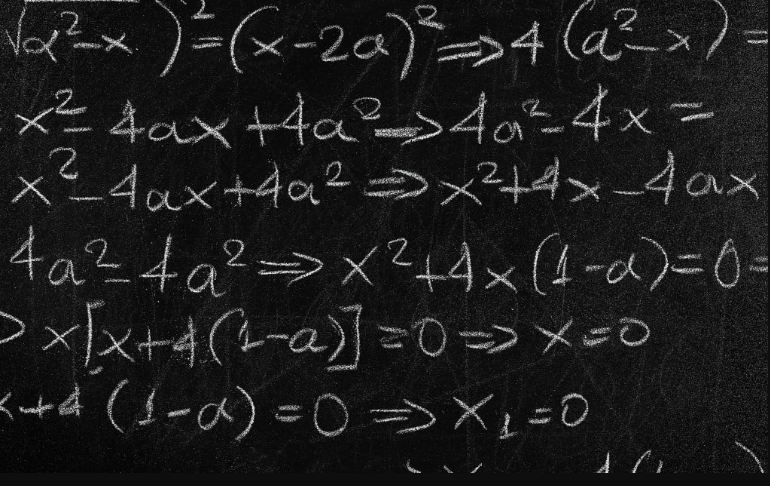 √a²-x)²=(x-2a)²⇒4(a²-x)=
x²-4ax+4a²⇒4a²-4x=
x²-4ax+4a²⇒x²+4x-4ax
4a²=4a²⇒x²+4x(1-a)=0=
⇒x[x+4(1-a)]=0⇒x=0
x+4(1-a)=0⇒x₁=0